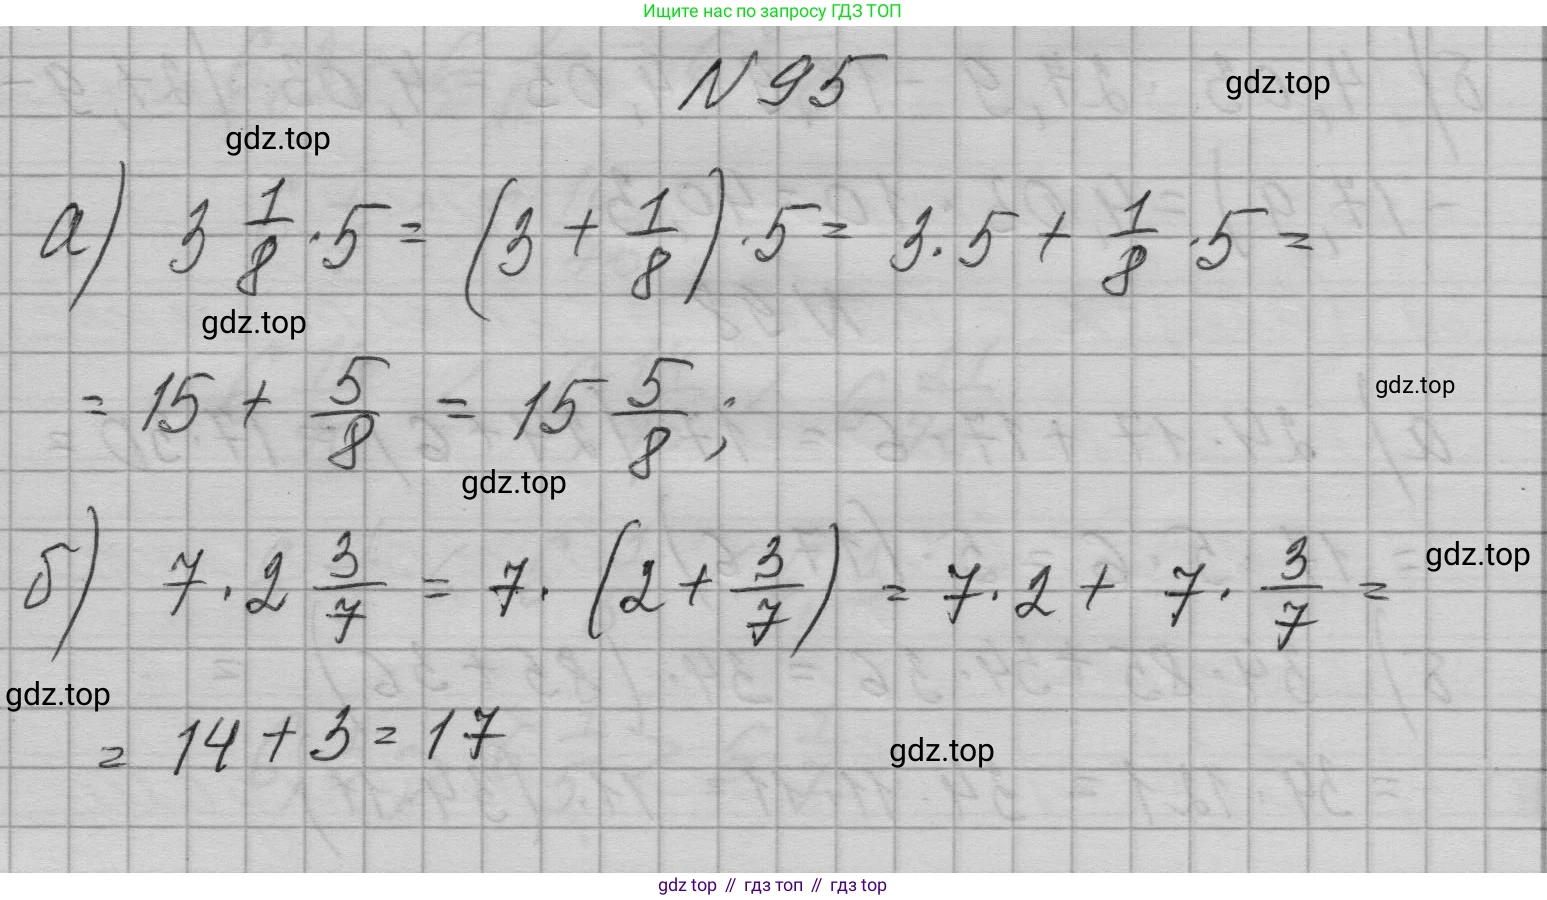 Ищите нас по запросу ГДЗ ТОП
N 95
gdz.top
gdz.top
а) 3 1/8 · 5 = (3 + 1/8) · 5 = 3 · 5 + 1/8 · 5 =
gdz.top
= 15 + 5/8 = 15 5/8 ;
gdz.top
gdz.top
б) 7 · 2 3/7 = 7 · (2 + 3/7) = 7 · 2 + 7 · 3/7 =
gdz.top
gdz.top
= 14 + 3 = 17
gdz.top
gdz top // гдз топ // гдз top